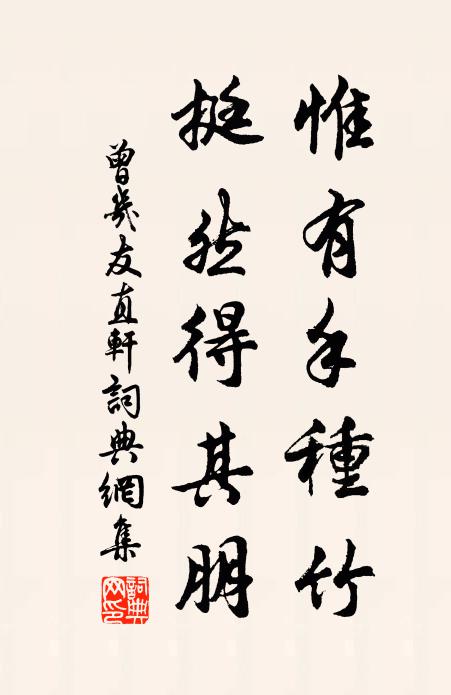 惟有手種竹
挺然得其朋
曾幾友直軒詞典網集
詞典網印